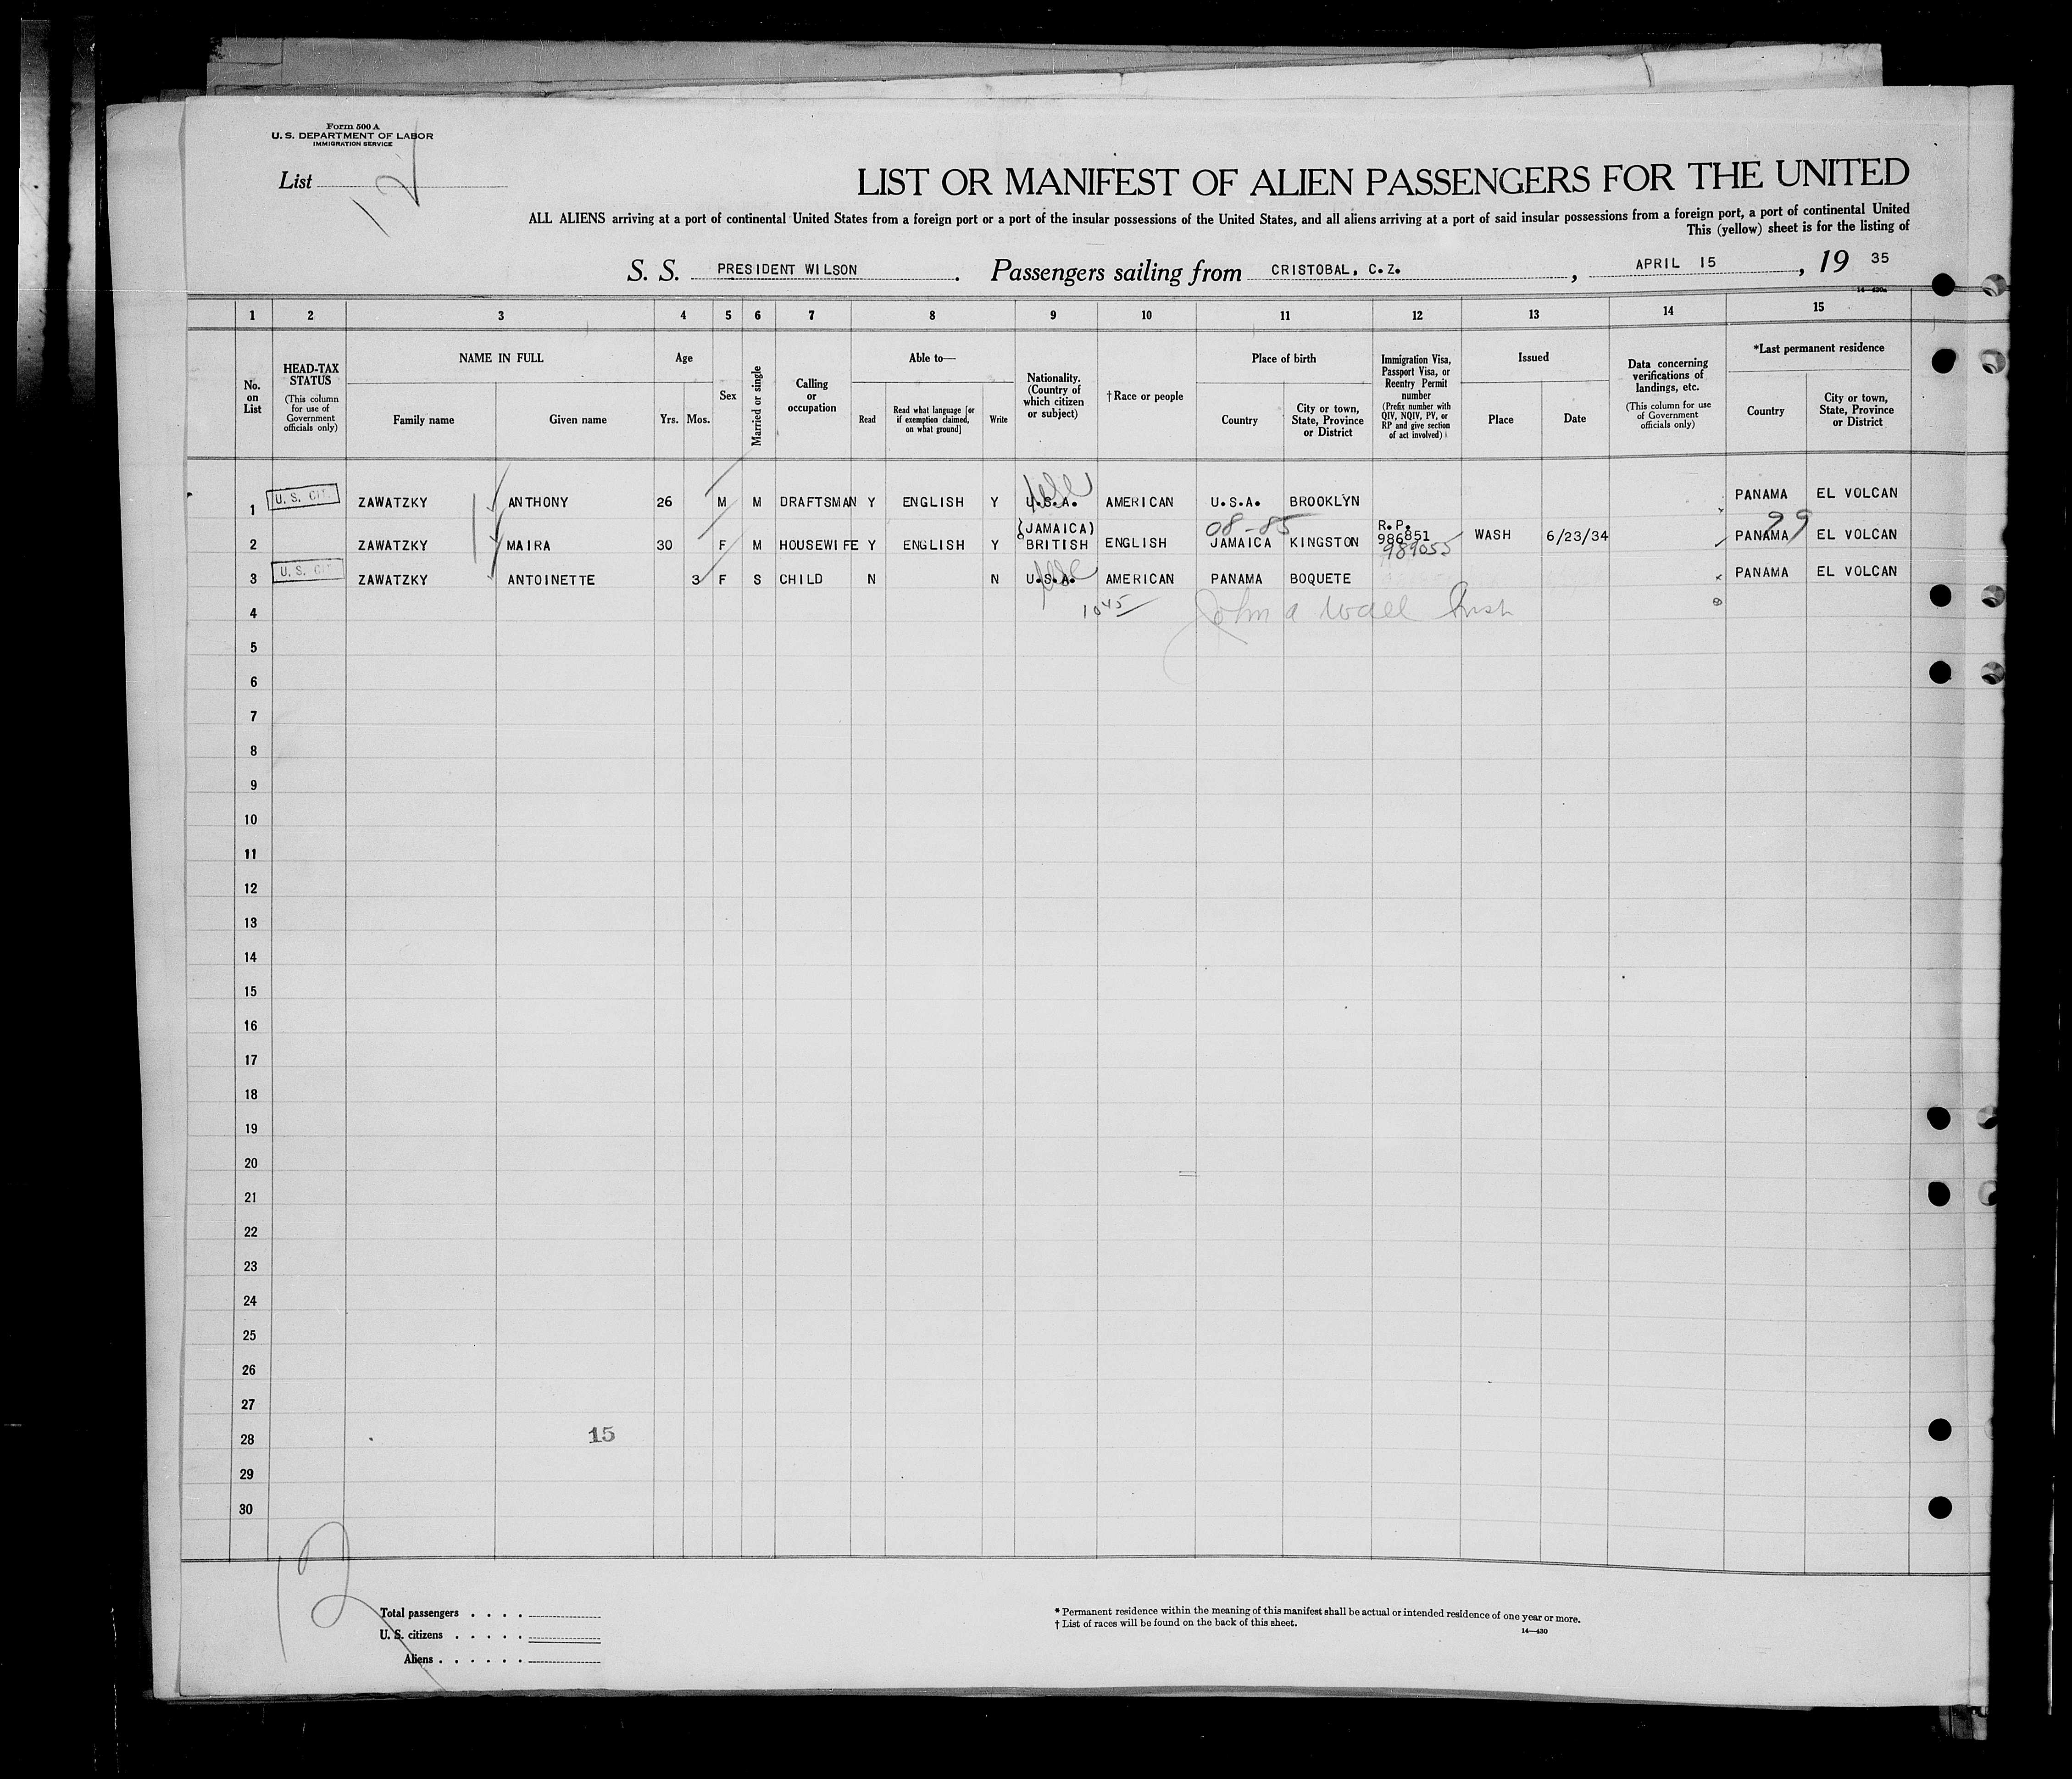 Form 500 A
U. S. DEPARTMENT OF LABOR
IMMIGRATION SERVICE
List 12
LIST OR MANIFEST OF ALIEN PASSENGERS FOR THE UNITED
ALL ALIENS arriving at a port of continental United States from a foreign port or a port of the insular possessions of the United States, and all aliens arriving at a port of said insular possessions from a foreign port, a port of continental United
This (yellow) sheet is for the listing of
S. S. PRESIDENT WILSON. Passengers sailing from CRISTOBAL, C.Z., APRIL 15, 19 35
1 2 3 4 5 6 7 8 9 10 11 12 13 14 15
No. on List
HEAD-TAX STATUS
(This column for use of Government officials only)
NAME IN FULL
Family name Given name
Age
Yrs. Mos.
Sex
Married or single
Calling or occupation
Able to—
Read
Read what language [or if exemption claimed, on what ground]
Write
Nationality. (Country of which citizen or subject)
†Race or people
Place of birth
Country
City or town, State, Province or District
Immigration Visa, Passport Visa, or Reentry Permit number
(Prefix number with QIV, NQIV, PV, or RP and give section of act involved)
Issued
Place Date
Data concerning verifications of landings, etc.
(This column for use of Government officials only)
*Last permanent residence
Country
City or town, State, Province or District
1 U. S. CIT. ZAWATZKY ANTHONY 26 M M DRAFTSMAN Y ENGLISH Y U.S.A. AMERICAN U.S.A. BROOKLYN PANAMA EL VOLCAN
(JAMAICA) 08-85 R.P. 99
2 ZAWATZKY MAIRA 30 F M HOUSEWIFE Y ENGLISH Y BRITISH ENGLISH JAMAICA KINGSTON 986851 WASH 6/23/34 PANAMA EL VOLCAN
989055
3 U. S. CIT ZAWATZKY ANTOINETTE 3 F S CHILD N N U.S.A. AMERICAN PANAMA BOQUETE PANAMA EL VOLCAN
4 1045 John a Wall
5
6
7
8
9
10
11
12
13
14
15
16
17
18
19
20
21
22
23
24
25
26
27
28 15
29
30
12
Total passengers . . . .
U. S. citizens . . . . .
Aliens . . . . . .
* Permanent residence within the meaning of this manifest shall be actual or intended residence of one year or more.
† List of races will be found on the back of this sheet.
14—430